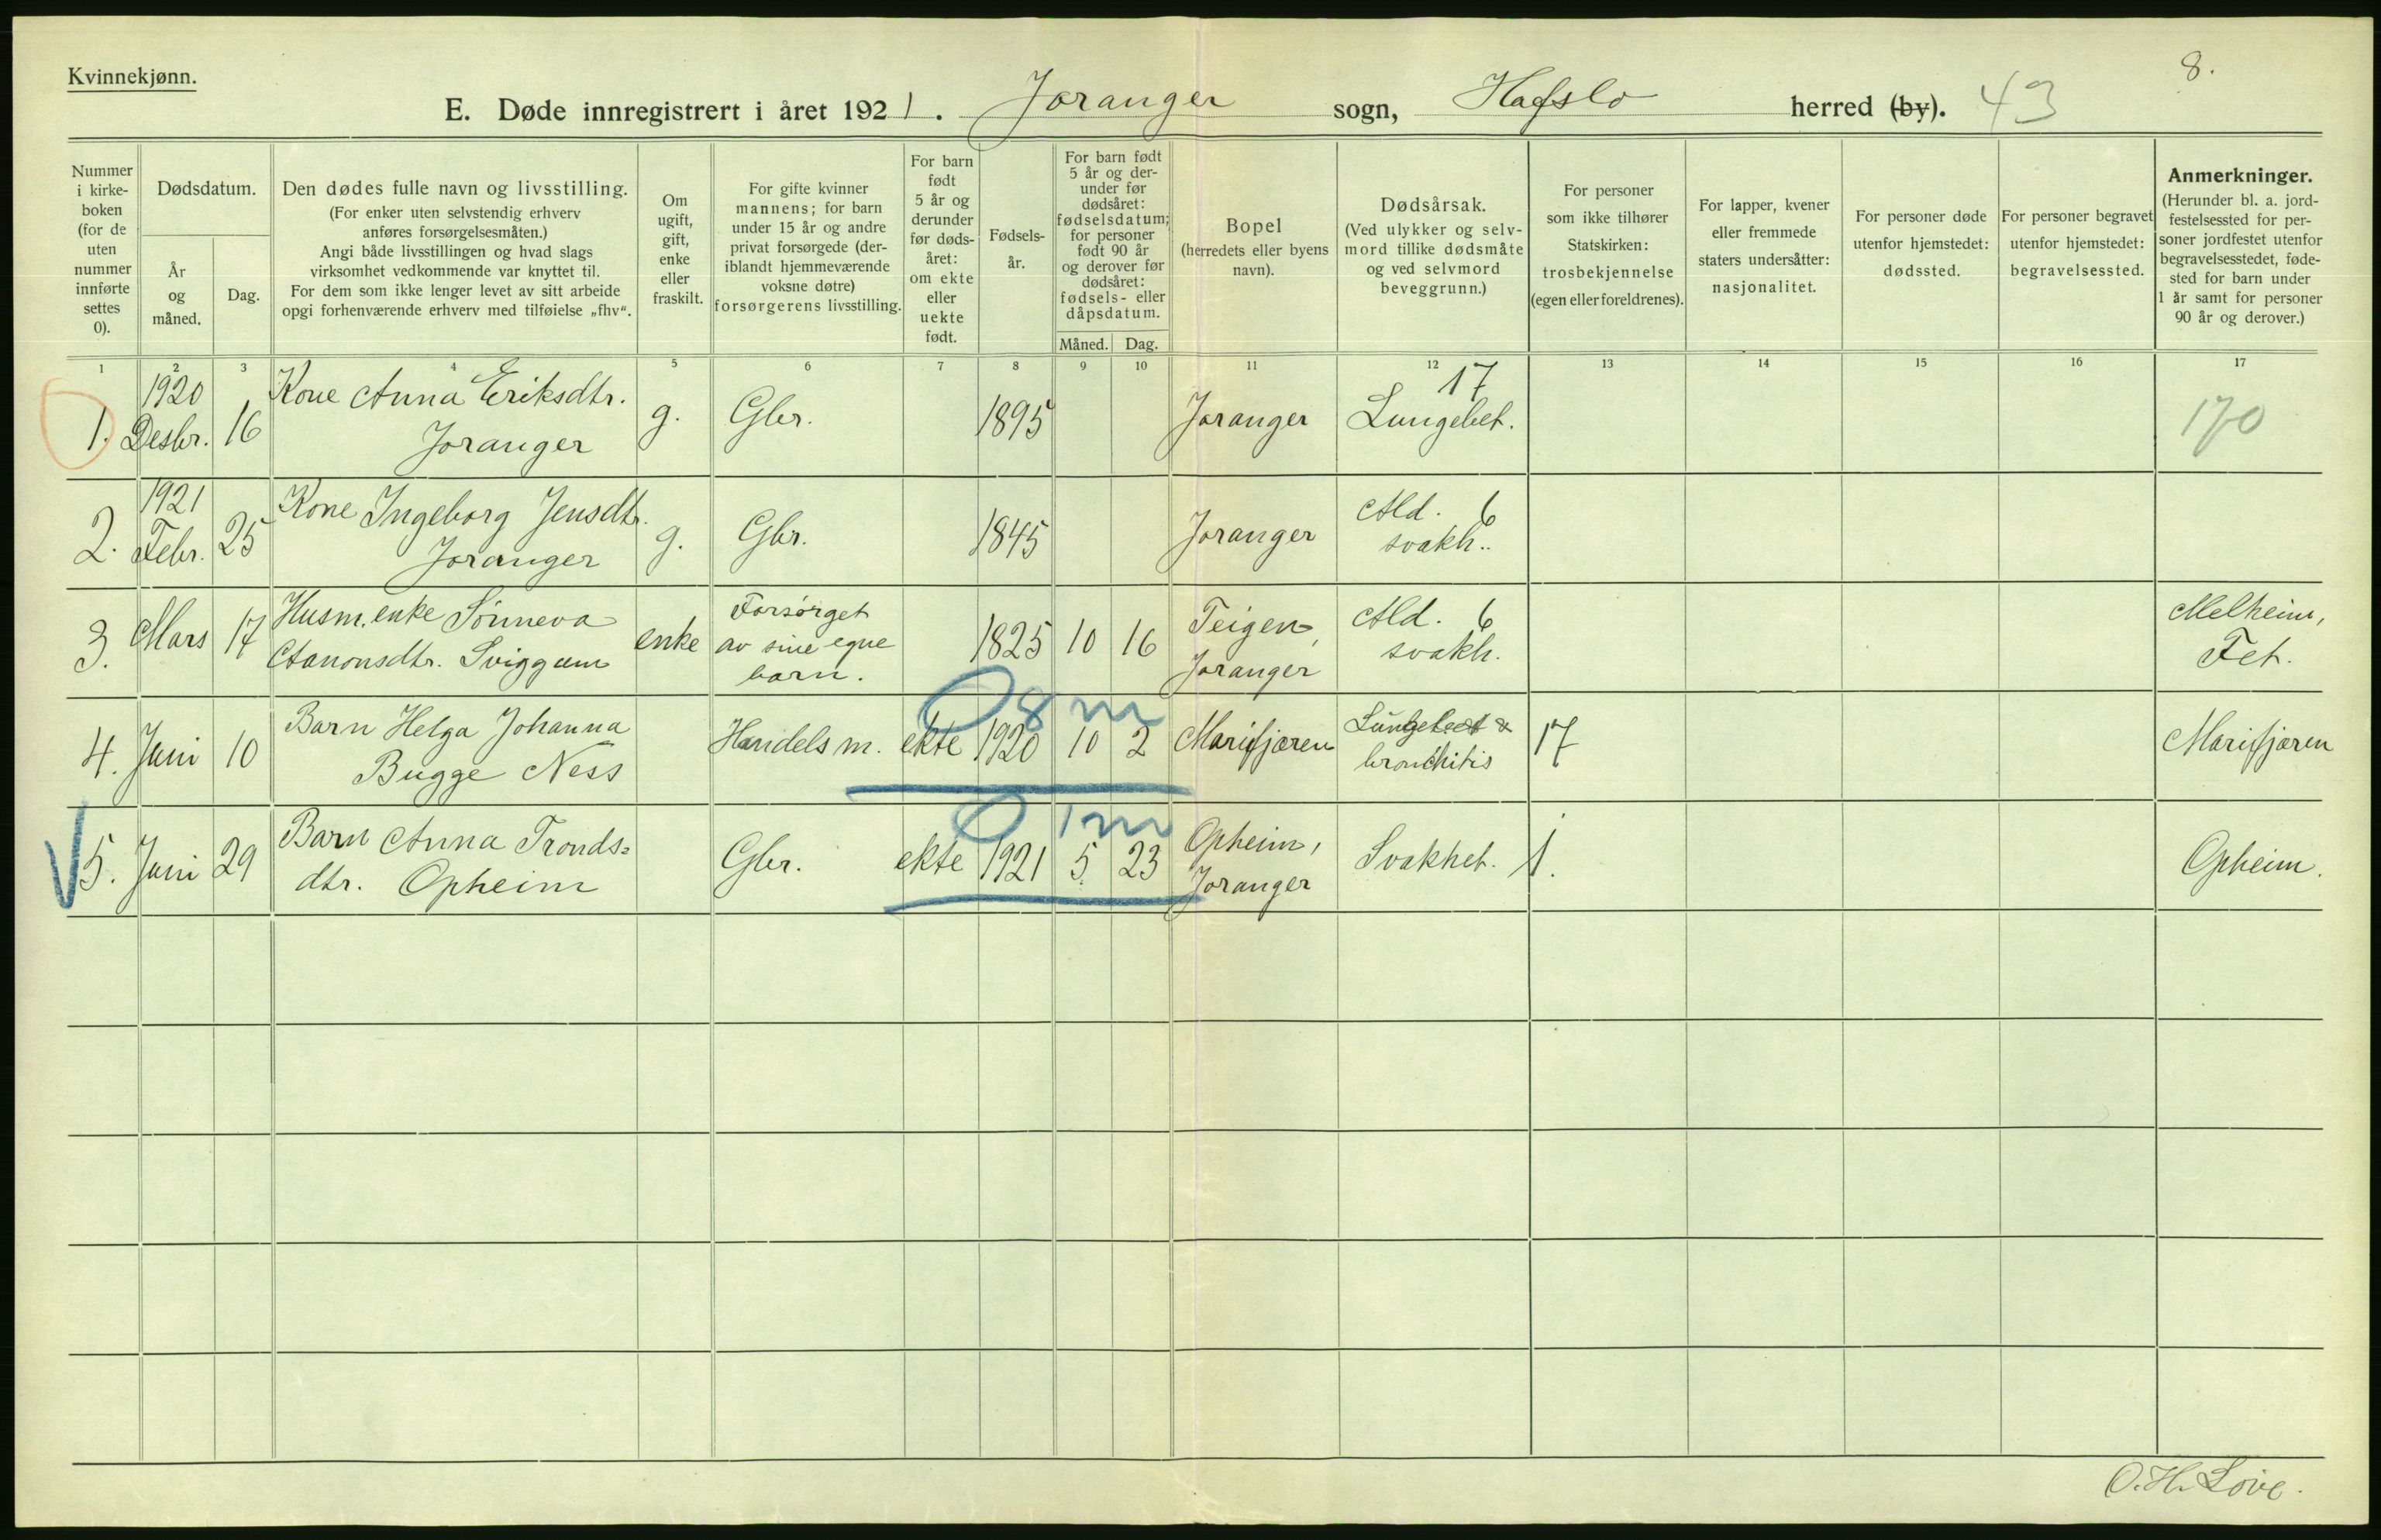 Kvinnekjønn.
8.
E. Døde innregistrert i året 1921. Joranger sogn, Hafslo herred (by). 43
Nummer
i kirke-
boken
(for de
uten
nummer
innførte
settes
0).
Dødsdatum.
År
og
måned.
Dag.
Den dødes fulle navn og livsstilling.
(For enker uten selvstendig erhverv
anføres forsørgelsesmåten.)
Angi både livsstillingen og hvad slags
virksomhet vedkommende var knyttet til.
For dem som ikke lenger levet av sitt arbeide
opgi forhenværende erhverv med tilføielse „fhv“.
Om
ugift,
gift,
enke
eller
fraskilt.
For gifte kvinner
mannens; for barn
under 15 år og andre
privat forsørgede (der-
iblandt hjemmeværende
voksne døtre)
forsørgerens livsstilling.
For barn
født
5 år og
derunder
før døds-
året:
om ekte
eller
uekte
født.
Fødsels-
år.
For barn født
5 år og der-
under før
dødsåret:
fødselsdatum;
for personer
født 90 år
og derover før
dødsåret:
fødsels- eller
dåpsdatum.
Måned. Dag.
Bopel
(herredets eller byens
navn).
Dødsårsak.
(Ved ulykker og selv-
mord tillike dødsmåte
og ved selvmord
beveggrunn.)
For personer
som ikke tilhører
Statskirken:
trosbekjennelse
(egen eller foreldrenes).
For lapper, kvener
eller fremmede
staters undersåtter:
nasjonalitet.
For personer døde
utenfor hjemstedet:
dødssted.
For personer begravet
utenfor hjemstedet:
begravelsessted.
Anmerkninger.
(Herunder bl. a. jord-
festelsessted for per-
soner jordfestet utenfor
begravelsesstedet, føde-
sted for barn under
1 år samt for personer
90 år og derover.)
1 2 3 4 5 6 7 8 9 10 11 12 13 14 15 16 17
1920 Kone Anna Eriksdtr. 17
1. Desbr. 16 Joranger g. Gbr. 1895 Joranger Lungebet. 170
1921 Kone Ingeborg Jensdtr. Ald. 6
2. Febr. 25 Joranger g. Gbr. 1845 Joranger svakh..
Husm. enke Sønneva Forsørget Teigen, Ald. 6 Melheim,
3. Mars 17 Aanonsdtr. Sviggum enke av sine egne 1825 10 16 Joranger svakh. Fet.
barn.
0 8 m
Barn Helga Johanna Lungebet &
4. Juni 10 Bugge Ness Handelsm. ekte 1920 10 2 Marifjæren bronchitis 17 Marifjæren
0 1 m
Barn Anna Tronds= Opheim,
5. Juni 29 dtr. Opheim Gbr. ekte 1921 5 23 Joranger Svakhet. 1. Opheim.
O.H. Loive.